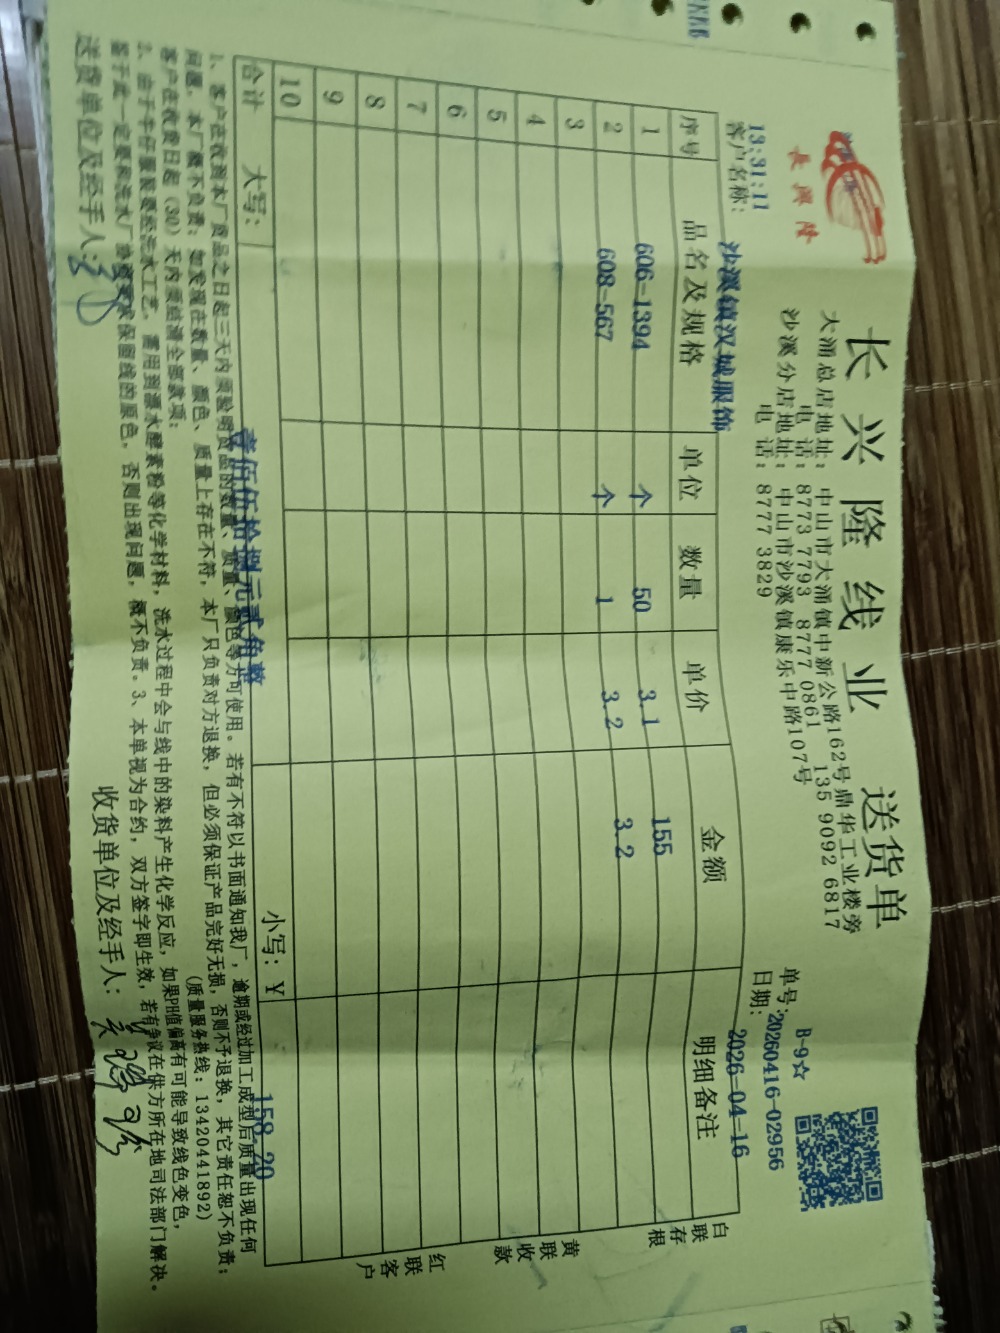 長興隆
长兴隆线业 送货单
大涌总店地址：中山市大涌镇中新公路162号鼎华工业楼旁
电话：8773 7793 8777 0861 135 9092 6817
沙溪分店地址：中山市沙溪镇康乐中路107号
电话：8777 3829
B-9☆
单号：20260416-02956
13:31:11
日期：2026-04-16
客户名称：沙溪镇汉城服饰
序号 品名及规格 单位 数量 单价 金额 明细备注
1 606-1394 个 50 3.1 155
2 608-567 个 1 3.2 3.2
3
4
5
6
7
8
9
10
合计 大写：壹佰伍拾捌元贰角整 小写：¥ 158.20
白联存根
黄联收款
红联客户
1、客户在收到本厂货品之日起三天内须验明货品的数量、质量、颜色等方可使用。若有不符以书面通知我厂，逾期或经过加工成型后质量出现任何
问题，本厂概不负责；如发现在数量、颜色、质量上存在不符，本厂只负责对方退换，但必须保证产品完好无损，否则不予退换，其它责任恕不负责；
客户在收货日起（30）天内须结清全部款项； （质量服务热线：13420441892）
2、由于牛仔服装要经洗水工艺，需用到漂水酵素粉等化学材料，洗水过程中会与线中的染料产生化学反应，如果PH值偏高有可能导致线色变色，
鉴于此一定要和洗水厂协商要求保留线的原色，否则出现问题，概不负责。3、本单视为合约，双方签字即生效，若有争议在供方所在地司法部门解决。
送货单位及经手人： 收货单位及经手人：